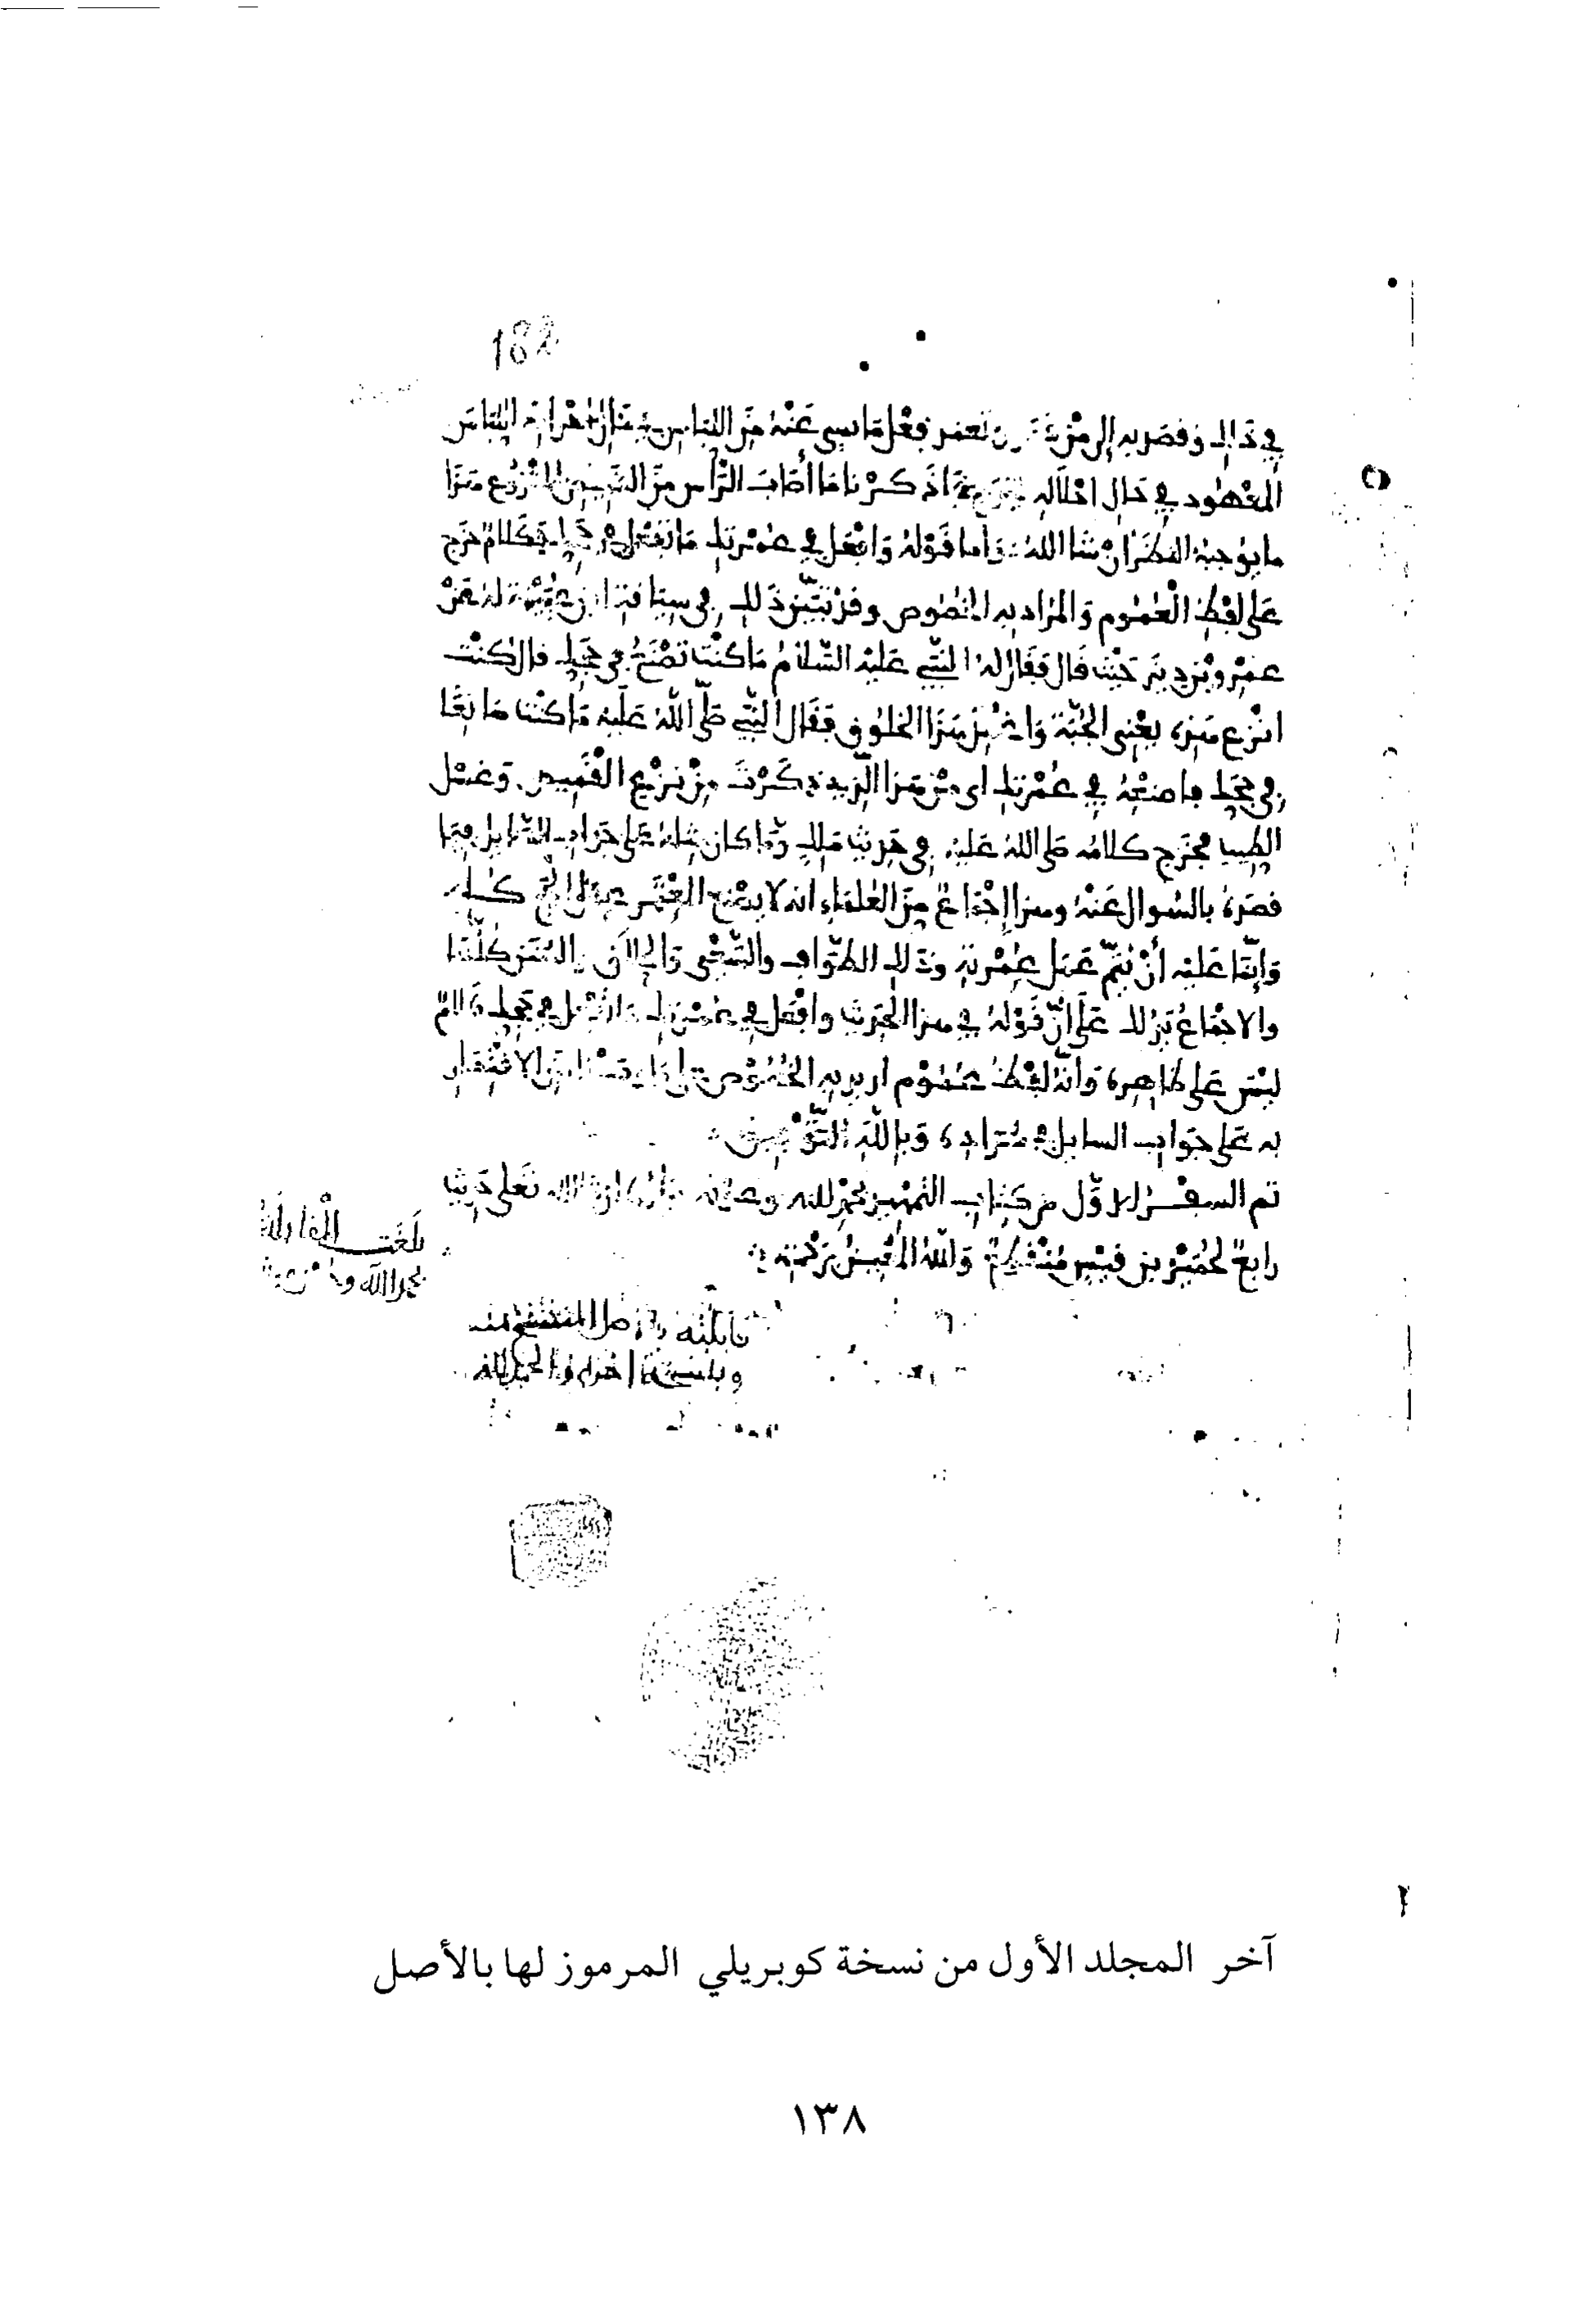 182
في ذلك وقصد به إلى من تعمد فعل ما نهي عنه من اللباس في حال إحرامه اللباس
المعهود في حال إحلاله ذكرنا ما أصاب الرأس من القميص المنزوع هذا
ما يوجبه النظر ان شا الله وأما قوله وافعل في عمرتك ما تفعل في حجك فكلام خرج
على لفظ العموم والمراد به الخصوص وقد تبين ذلك في سياقة ابن عيينة له عن
عمرو بن دينر حيث قال فقال له النبي عليه السلام ما كنت تصنع في حجك قال كنت
انزع هذه يعني الجبة واغسل هذا الخلوق فقال النبي صلى الله عليه ما كنت صانعا
في حجك فاصنعه في عمرتك اي من هذا الذي ذكرت من نزع القميص وغسل
الطيب فخرج كلامه صلى الله عليه في حديث ملك وما كان مثله على جواب السايل فيما
قصده بالسوال عنه وهذا إجماع من العلماء انه لا يصنع المعتمر عمل الحج كله
وإنما عليه أن يتم عمل عمرته وذلك الطواف والسعي والحلاق والسنن كلها
والاجماع يدلك على أن قوله في هذا الحديث وافعل في عمرتك ما تفعل في حجك كلام
ليس على ظاهره وأنه لفظ عموم اريد به الخصوص على الاقتصار
به على جواب السايل في مراده وبالله التوفيق
تم السفر الاول من كتاب التمهيد بحمد الله وعونه الله تعلى حديث
رابع لحميد بن قيس منقطع والله المعين برحمته
بلغت المقابلة
بحمد الله وحسن عونه
قابلته بالأصل المنتسخ منه
وبنسخة اخرى والحمد لله
آخر المجلد الأول من نسخة كوبريلي المرموز لها بالأصل
١٣٨